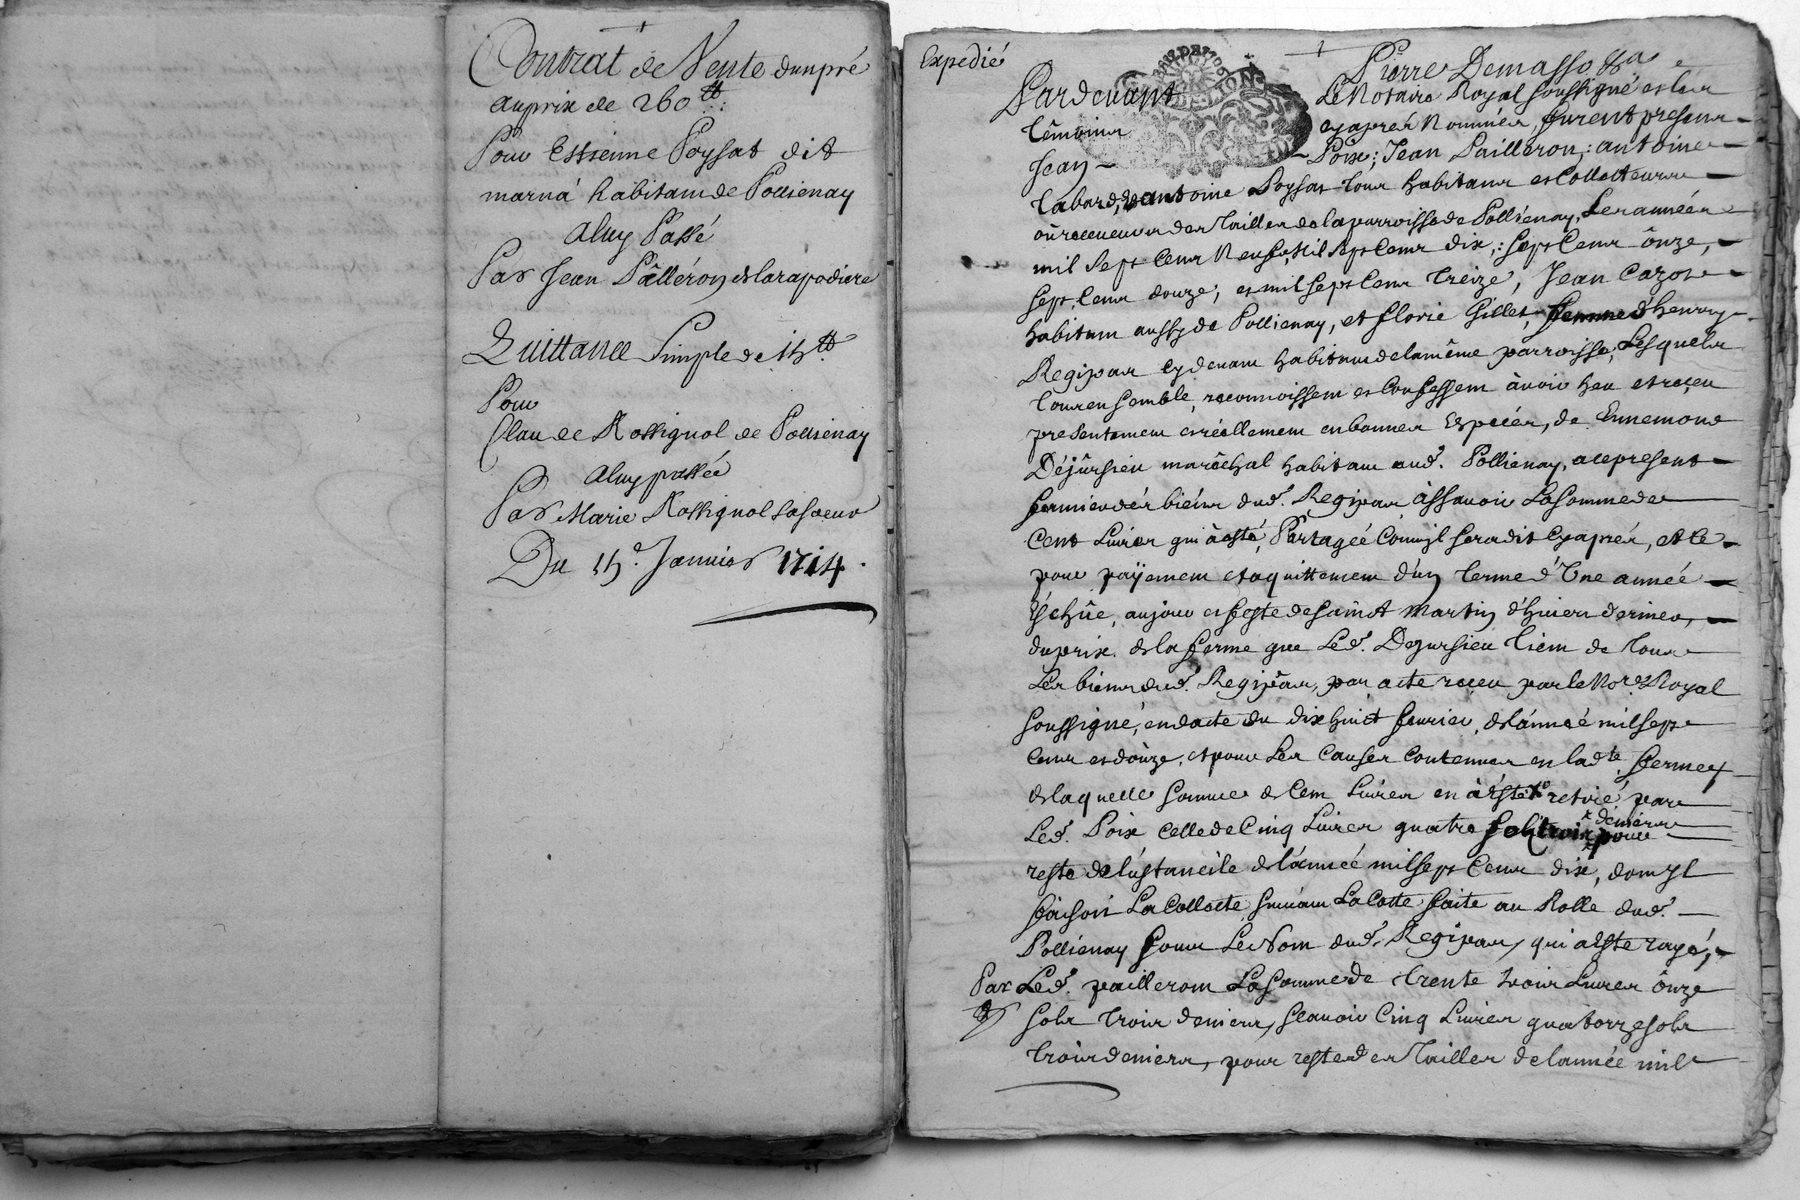 Contrat de Vente dunpré
auprix de 260 ₶:
Pour Estienne Poysat dit
marna habitant de Pollienay
aluy Passé
Par Jean Pâlléron delarapodiere
Quittance Simple de 15 ₶
Pour
Claude Rossignol de Pollienay
aluy passée
Par Marie Rossignol sa soeur
Du 15e. Janvier 1714.
Expedié
Pierre Demasso
Pardevant Le Notaire Royal soussigné et les
témoins cy aprés Nommés, furent presens
Jean Poix; Jean Pailleron; antoine
tabard, antoine Poysat tous habitans et Collecteurs
où receveurs des Tailles de la parroisse de Pollienay, Les années
mil sept cens Neuf, Mil sept cens dix,: sept cens ônze,
sept cens douze, et mil sept cens treize, Jean Cazot
habitant aussy de Pollienay, et florie Gillet, femme d'henry
Regipas cydevant habitans de la même parroisse; Lesquels
tous ensemble, reconnoissent et confessent àvoir heu et receu
presentement et réellement en bonnes Espéces, de Ennemond
Déjûrsieu maréchal habitant aud. Pollienay, acepresent
fermier dés biéns dud. Regipas àssavoir La somme de
Cent Livres qui à esté, Partagée Comm'jl sera dit cyaprés, et ce
pour payëment et aquittement d'un terme d'Une année
Éschûe, au jour et feste de sainct Martin d'hiver dernier,
du prix de la ferme que Led. Dejursieu tient de tous
Les biens dud. Regipâs, par acte receu par le Nore. Royal
soussigné, en dacte du dix huict fevrier, de l'année mil sept
cens et doûze, et pour Les Causes Contenues en lad.te ferme
de laquelle somme de Cent Livres en à ésté retiré par
Led. Poix celle de Cinq Livres quatre sols trois deniers pour
reste de l'ustancile de l'année mil sept cens dix, dont jl
fâisoit La Collecte suivant La Cotte faite au Rolle dud.
Pollienay sous Le Nom dud. Regipas, qui a esté rayé,
Par Led. pailleron La somme de trente trois Livres ônze
sols trois deniers, sçavoir Cinq Livres quatorze sols
trois deniers, pour reste des Tailles de l'année mil